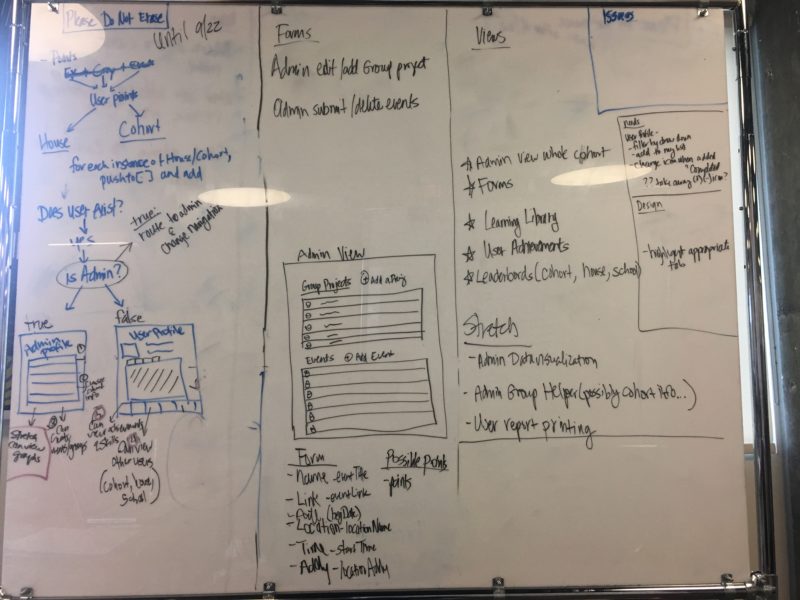 Please Do Not Erase
Until 9/22
- Points
User points
House
Cohort
for each instance of House/Cohort,
push to [ ] and add
Does User Exist?
yes
true:
route to admin
&
change navigation
Is Admin?
true
false
Admin Profile
User Profile
Stretch
can view
graphs
Can
view
achievements
Skills
Can view
other users
(cohort, house,
School)
Forms
Admin edit/add Group project
admin submit/delete events
Admin View
Group Projects + Add a Proj
Events + Add Event
Form
- Name - eventTitle
- Link - eventLink
- Location - locationName
- Time - startTime
- Addy - locationAddy
Possible Points
- points
Views
☆ Admin view whole cohort
☆ Forms
☆ Learning Library
☆ User Achievements
☆ Leaderboards (cohort, house, school)
Stretch
- Admin Data visualization
- Admin Group Helper (possibly cohort info...)
- User report printing
Issues
User Profile -
- filter by drop down
- add to my list
- change icon when added
Completed
Design
- highlight appropriate
tab